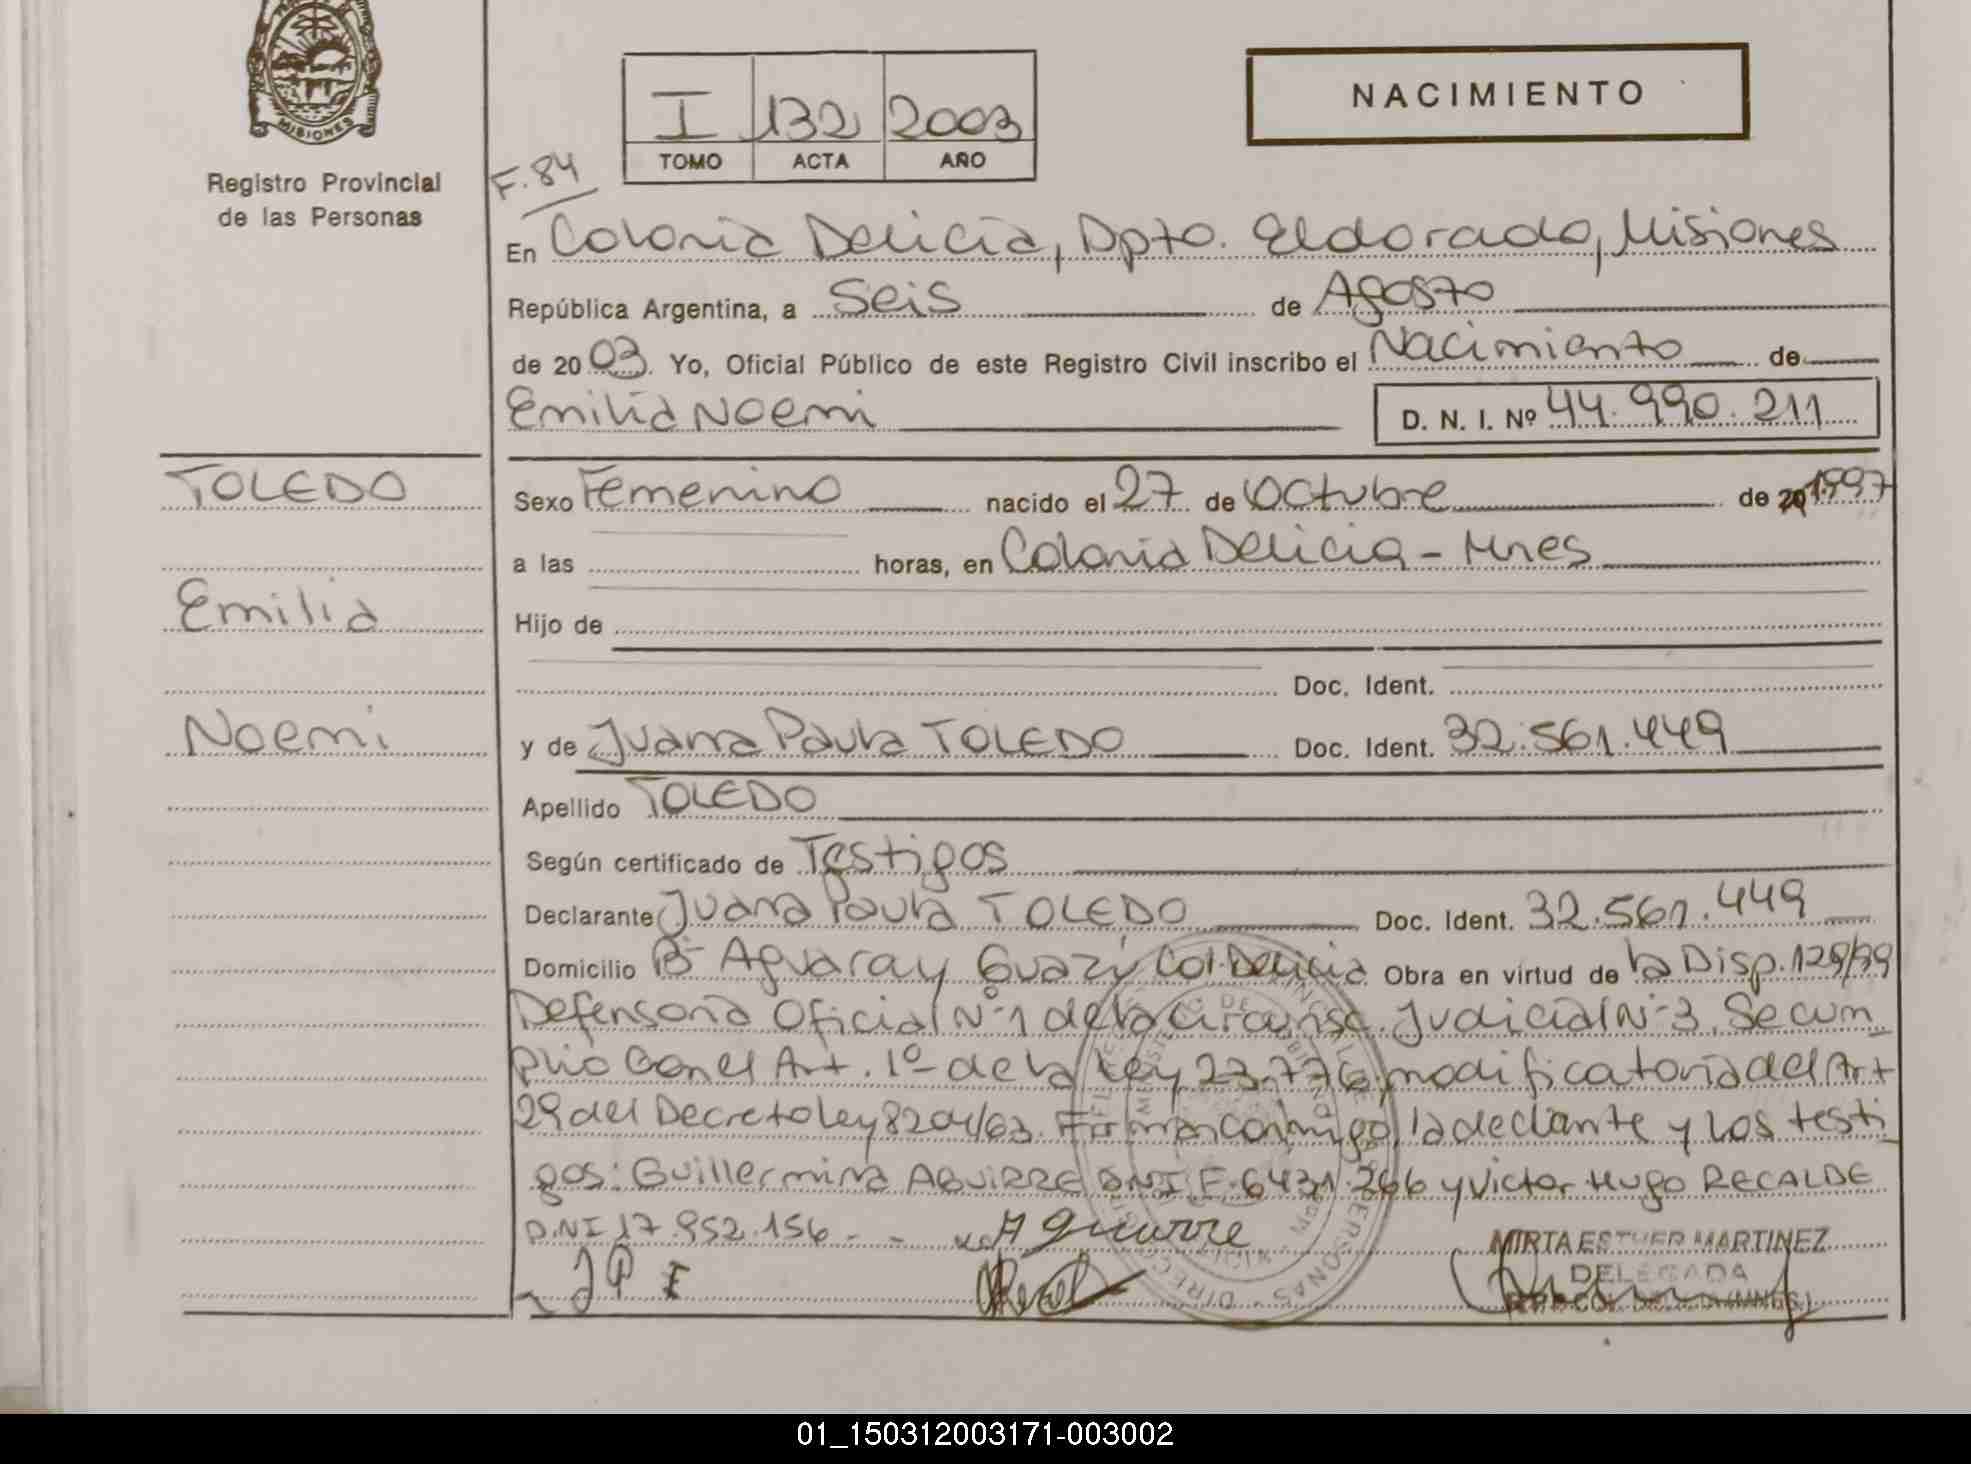 MISIONES
Registro Provincial
de las Personas
I 132 2003
TOMO ACTA AÑO
NACIMIENTO
F. 84
En Colonia Delicia, Dpto. Eldorado, Misiones
República Argentina, a Seis de Agosto
de 2003. Yo, Oficial Público de este Registro Civil inscribo el Nacimiento de
Emilia Noemi D. N. I. Nº 44.990.211
TOLEDO
Emilia
Noemi
Sexo Femenino nacido el 27 de Octubre de 20 1997
a las horas, en Colonia Delicia - Mnes
Hijo de
Doc. Ident.
y de Juana Paula TOLEDO Doc. Ident. 32.561.449
Apellido TOLEDO
Según certificado de Testigos
Declarante Juana Paula TOLEDO Doc. Ident. 32.561.449
Domicilio Bº Aguaray Guazú Col. Delicia Obra en virtud de la Disp. 129/99
Defensoria Oficial Nº 1 de la Circunsc. Judicial Nº 3. Se cum
plio con el Art. 1º de la Ley 23.776 modificatoria del Art
29 del Decreto Ley 8204/63. Firman conmigo la declante y los testi
gos: Guillermina AGUIRRE DNI F. 6431.266 y Victor Hugo RECALDE
D.NI 17.952.156 - -
Aguirre
MIRTA ESTHER MARTINEZ
DELEGADA
01_150312003171-003002